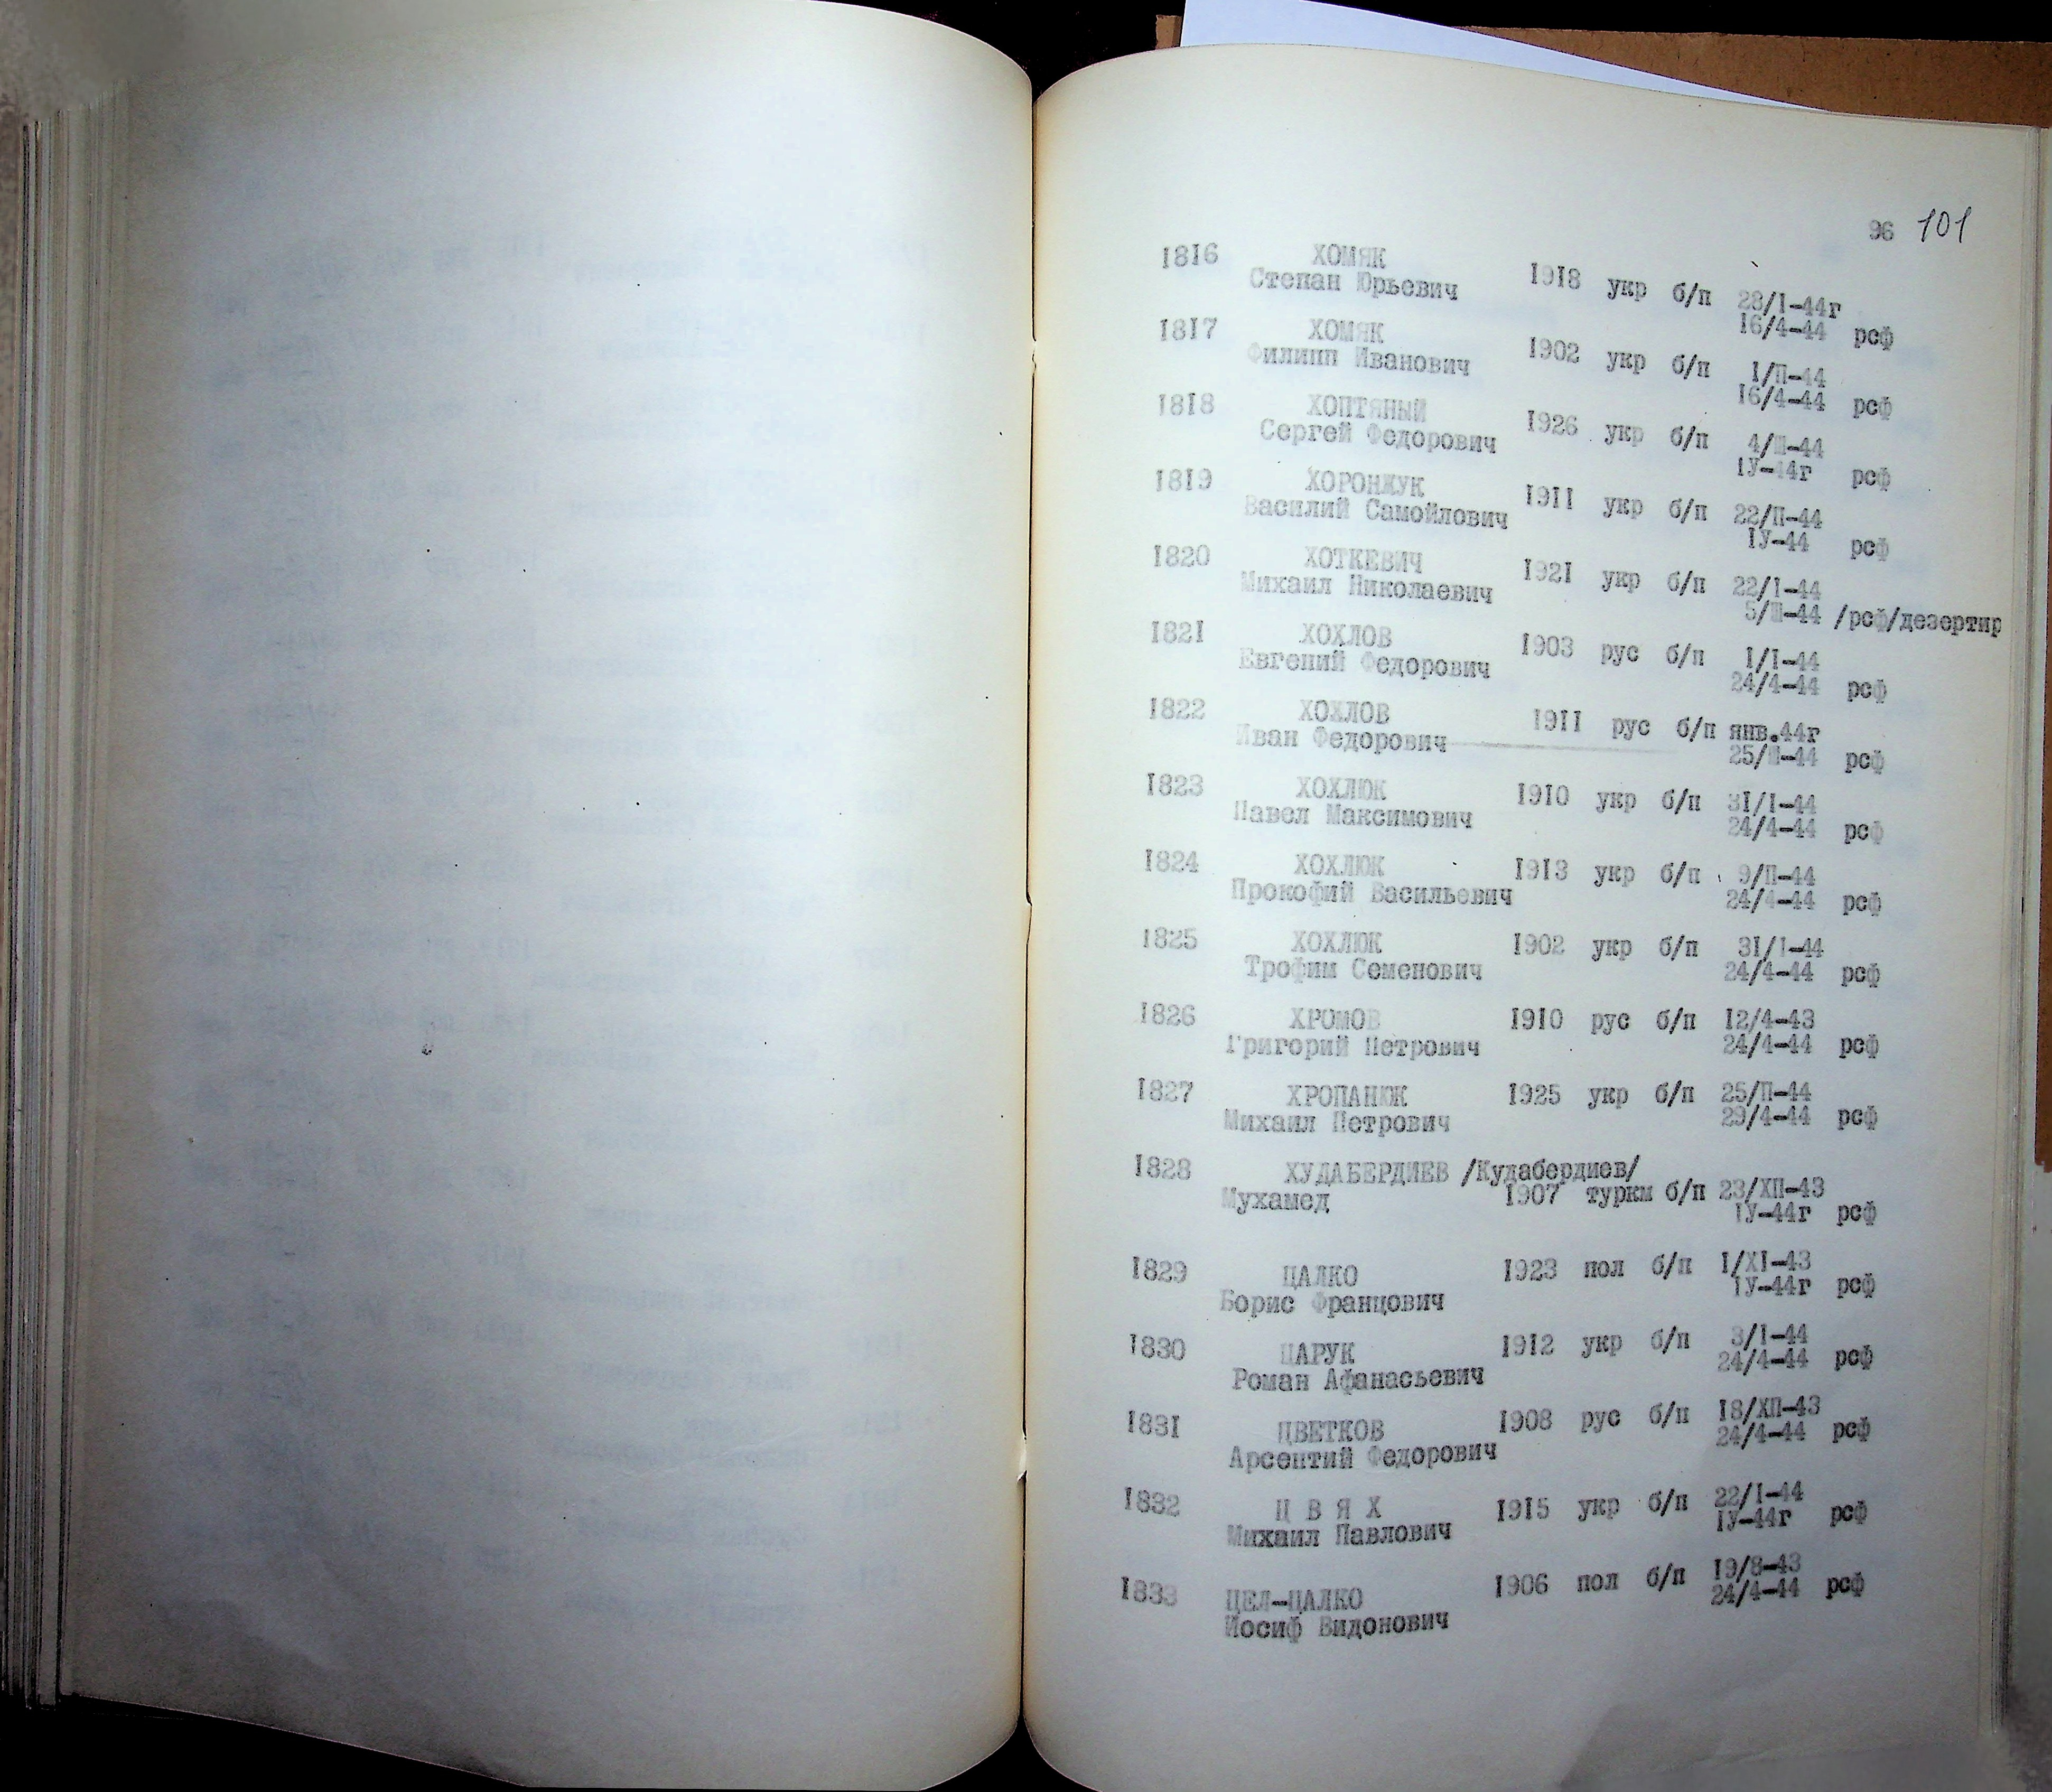 96 101
1816 ХОМЯК
Степан Юрьевич 1918 укр б/п 28/I-44г
16/4-44 рсф
1817 ХОМЯК
Филипп Иванович 1902 укр б/п 1/П-44
16/4-44 рсф
1818 ХОПТЯНЫЙ
Сергей Федорович 1926 укр б/п 4/Ш-44
IУ-44г рсф
1819 ХОРОНЖУК
Василий Самойлович 1911 укр б/п 22/П-44
IУ-44 рсф
1820 ХОТКЕВИЧ
Михаил Николаевич 1921 укр б/п 22/I-44
5/Ш-44 /рсф/дезертир
1821 ХОХЛОВ
Евгений Федорович 1903 рус б/п 1/I-44
24/4-44 рсф
1822 ХОХЛОВ
Иван Федорович 1911 рус б/п янв.44г
25/Ш-44 рсф
1823 ХОХЛЮК 1910 укр б/п 31/I-44
Павел Максимович 24/4-44 рсф
1824 ХОХЛЮК 1913 укр б/п 9/П-44
Прокофий Васильевич 24/4-44 рсф
1825 ХОХЛЮК 1902 укр б/п 31/I-44
Трофим Семенович 24/4-44 рсф
1826 ХРОМОВ 1910 рус б/п 12/4-43
Григорий Петрович 24/4-44 рсф
1827 ХРОПАНЮК 1925 укр б/п 25/П-44
Михаил Петрович 29/4-44 рсф
1828 ХУДАБЕРДИЕВ /Кудабердиев/
Мухамед 1907 туркм б/п 23/ХП-43
IУ-44г рсф
1829 ЦАЛКО 1923 пол б/п 1/XI-43
Борис Францович IУ-44г рсф
1830 ЦАРУК 1912 укр б/п 3/I-44
Роман Афанасьевич 24/4-44 рсф
1831 ЦВЕТКОВ 1908 рус б/п 18/ХП-43
Арсентий Федорович 24/4-44 рсф
1832 Ц В Я Х 1915 укр б/п 22/I-44
Михаил Павлович IУ-44г рсф
1833 ЦЕЛ-ЦАЛКО 1906 пол б/п 19/8-43
Иосиф Видонович 24/4-44 рсф